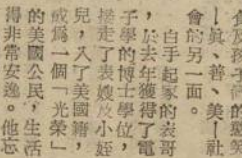 及孩子們的嬉笑
—眞、善、美—社
會的另一面。
白手起家的表哥
，於去年獲得了電
子學的博士學位，
接走了表嫂及小姪
兒，入了美國籍，
成爲一個「光榮」
的美國公民，生活
得非常安逸。他忘